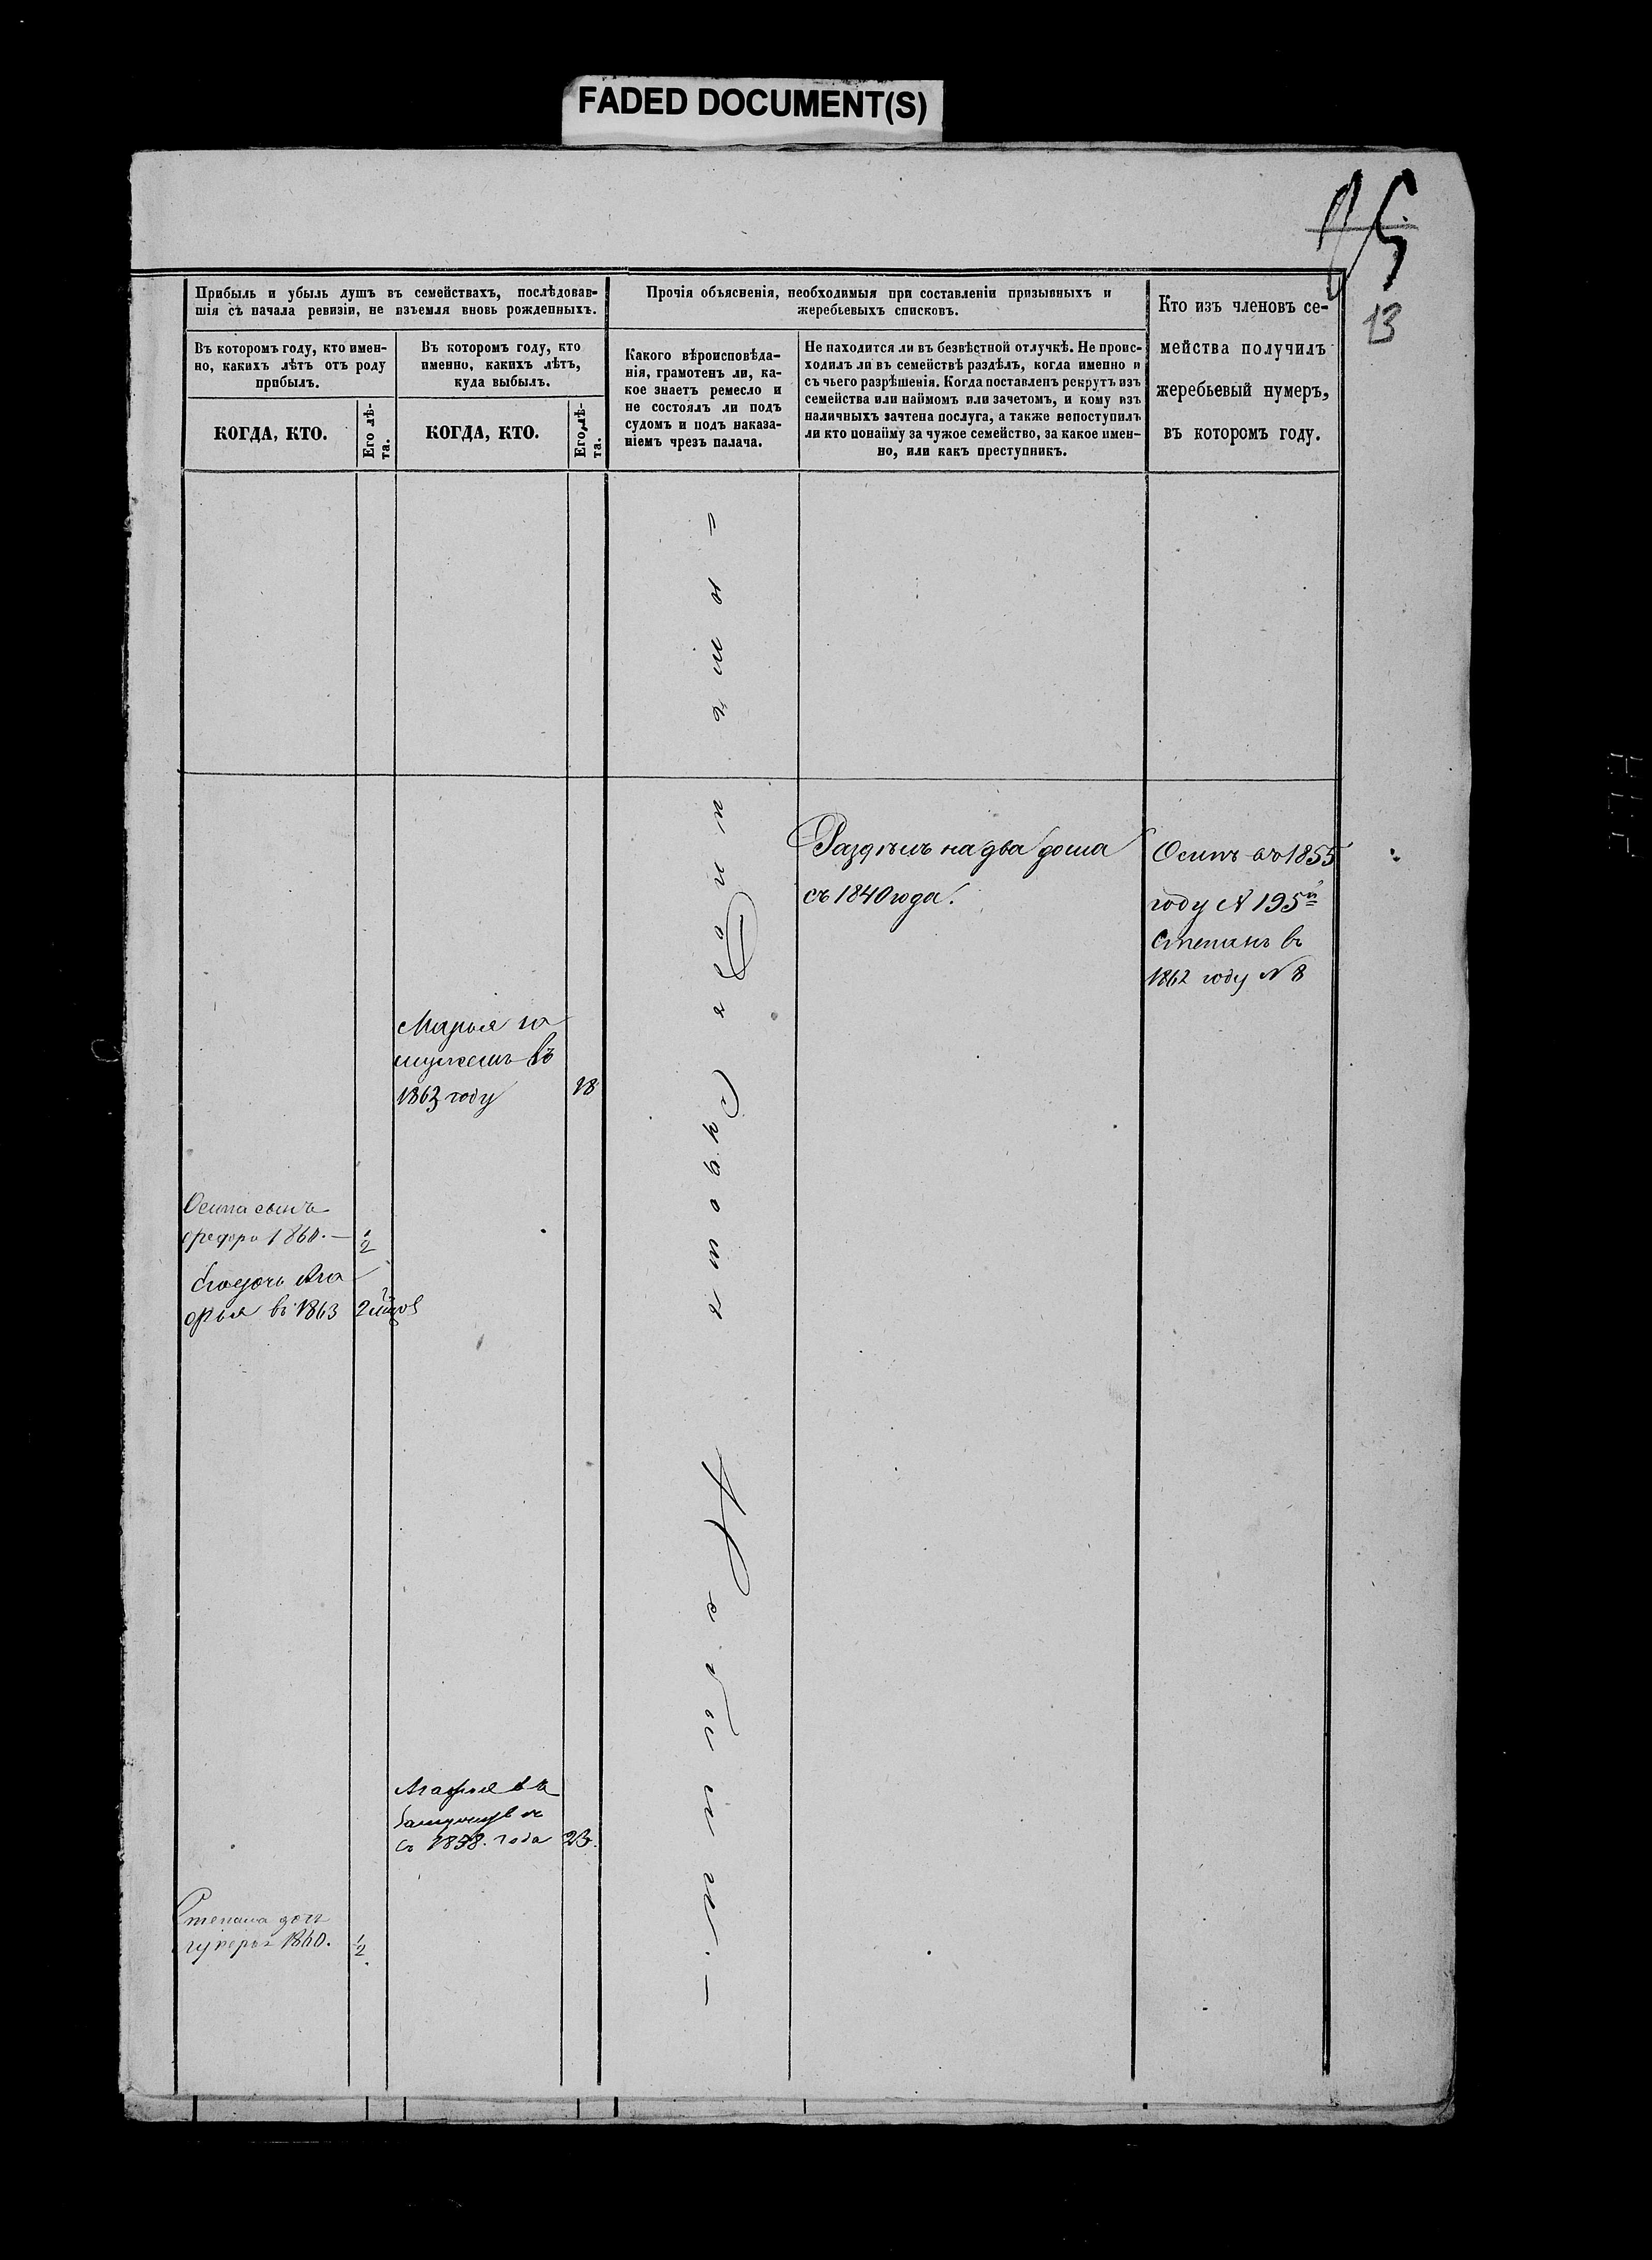 FADED DOCUMENT(S)
13
Прибыль и убыль душъ въ семействахъ, послѣдовав-
шія съ начала ревизіи, не изъемля вновь рожденныхъ.
Прочія объясненія, необходимыя при составленіи призывныхъ и
жеребьевыхъ списковъ.
Кто изъ членовъ се-
мейства получилъ
жеребьевый нумеръ,
въ которомъ году.
Въ которомъ году, кто имен-
но, какихъ лѣтъ отъ роду
прибылъ.
Въ которомъ году, кто
именно, какихъ лѣтъ,
куда выбылъ.
Какого вѣроисповѣда-
нія, грамотенъ ли, ка-
кое знаетъ ремесло и
не состоялъ ли подъ
судомъ и подъ наказа-
ніемъ чрезъ палача.
Не находится ли въ безвѣстной отлучкѣ. Не проис-
ходилъ ли въ семействѣ раздѣлъ, когда именно и
съ чьего разрѣшенія. Когда поставленъ рекрутъ изъ
семейства или наймомъ или зачетомъ, и кому изъ
наличныхъ зачтена послуга, а также непоступилъ
ли кто понайму за чужое семейство, за какое имен-
но, или какъ преступникъ.
КОГДА, КТО.
Его лѣ-
та.
КОГДА, КТО.
Его лѣ-
та.
Раздѣлъ на два дома
съ 1840 года.
Осипъ въ 1855
году N 195й
Степанъ въ
1862 году N 8
Марья за
мужемъ въ
1863 году
18
Осипа сынъ
1860. —
1/2
въ 1863
Агафья въ
съ 1858. года
23.
Степана дочь
1860.
1/2